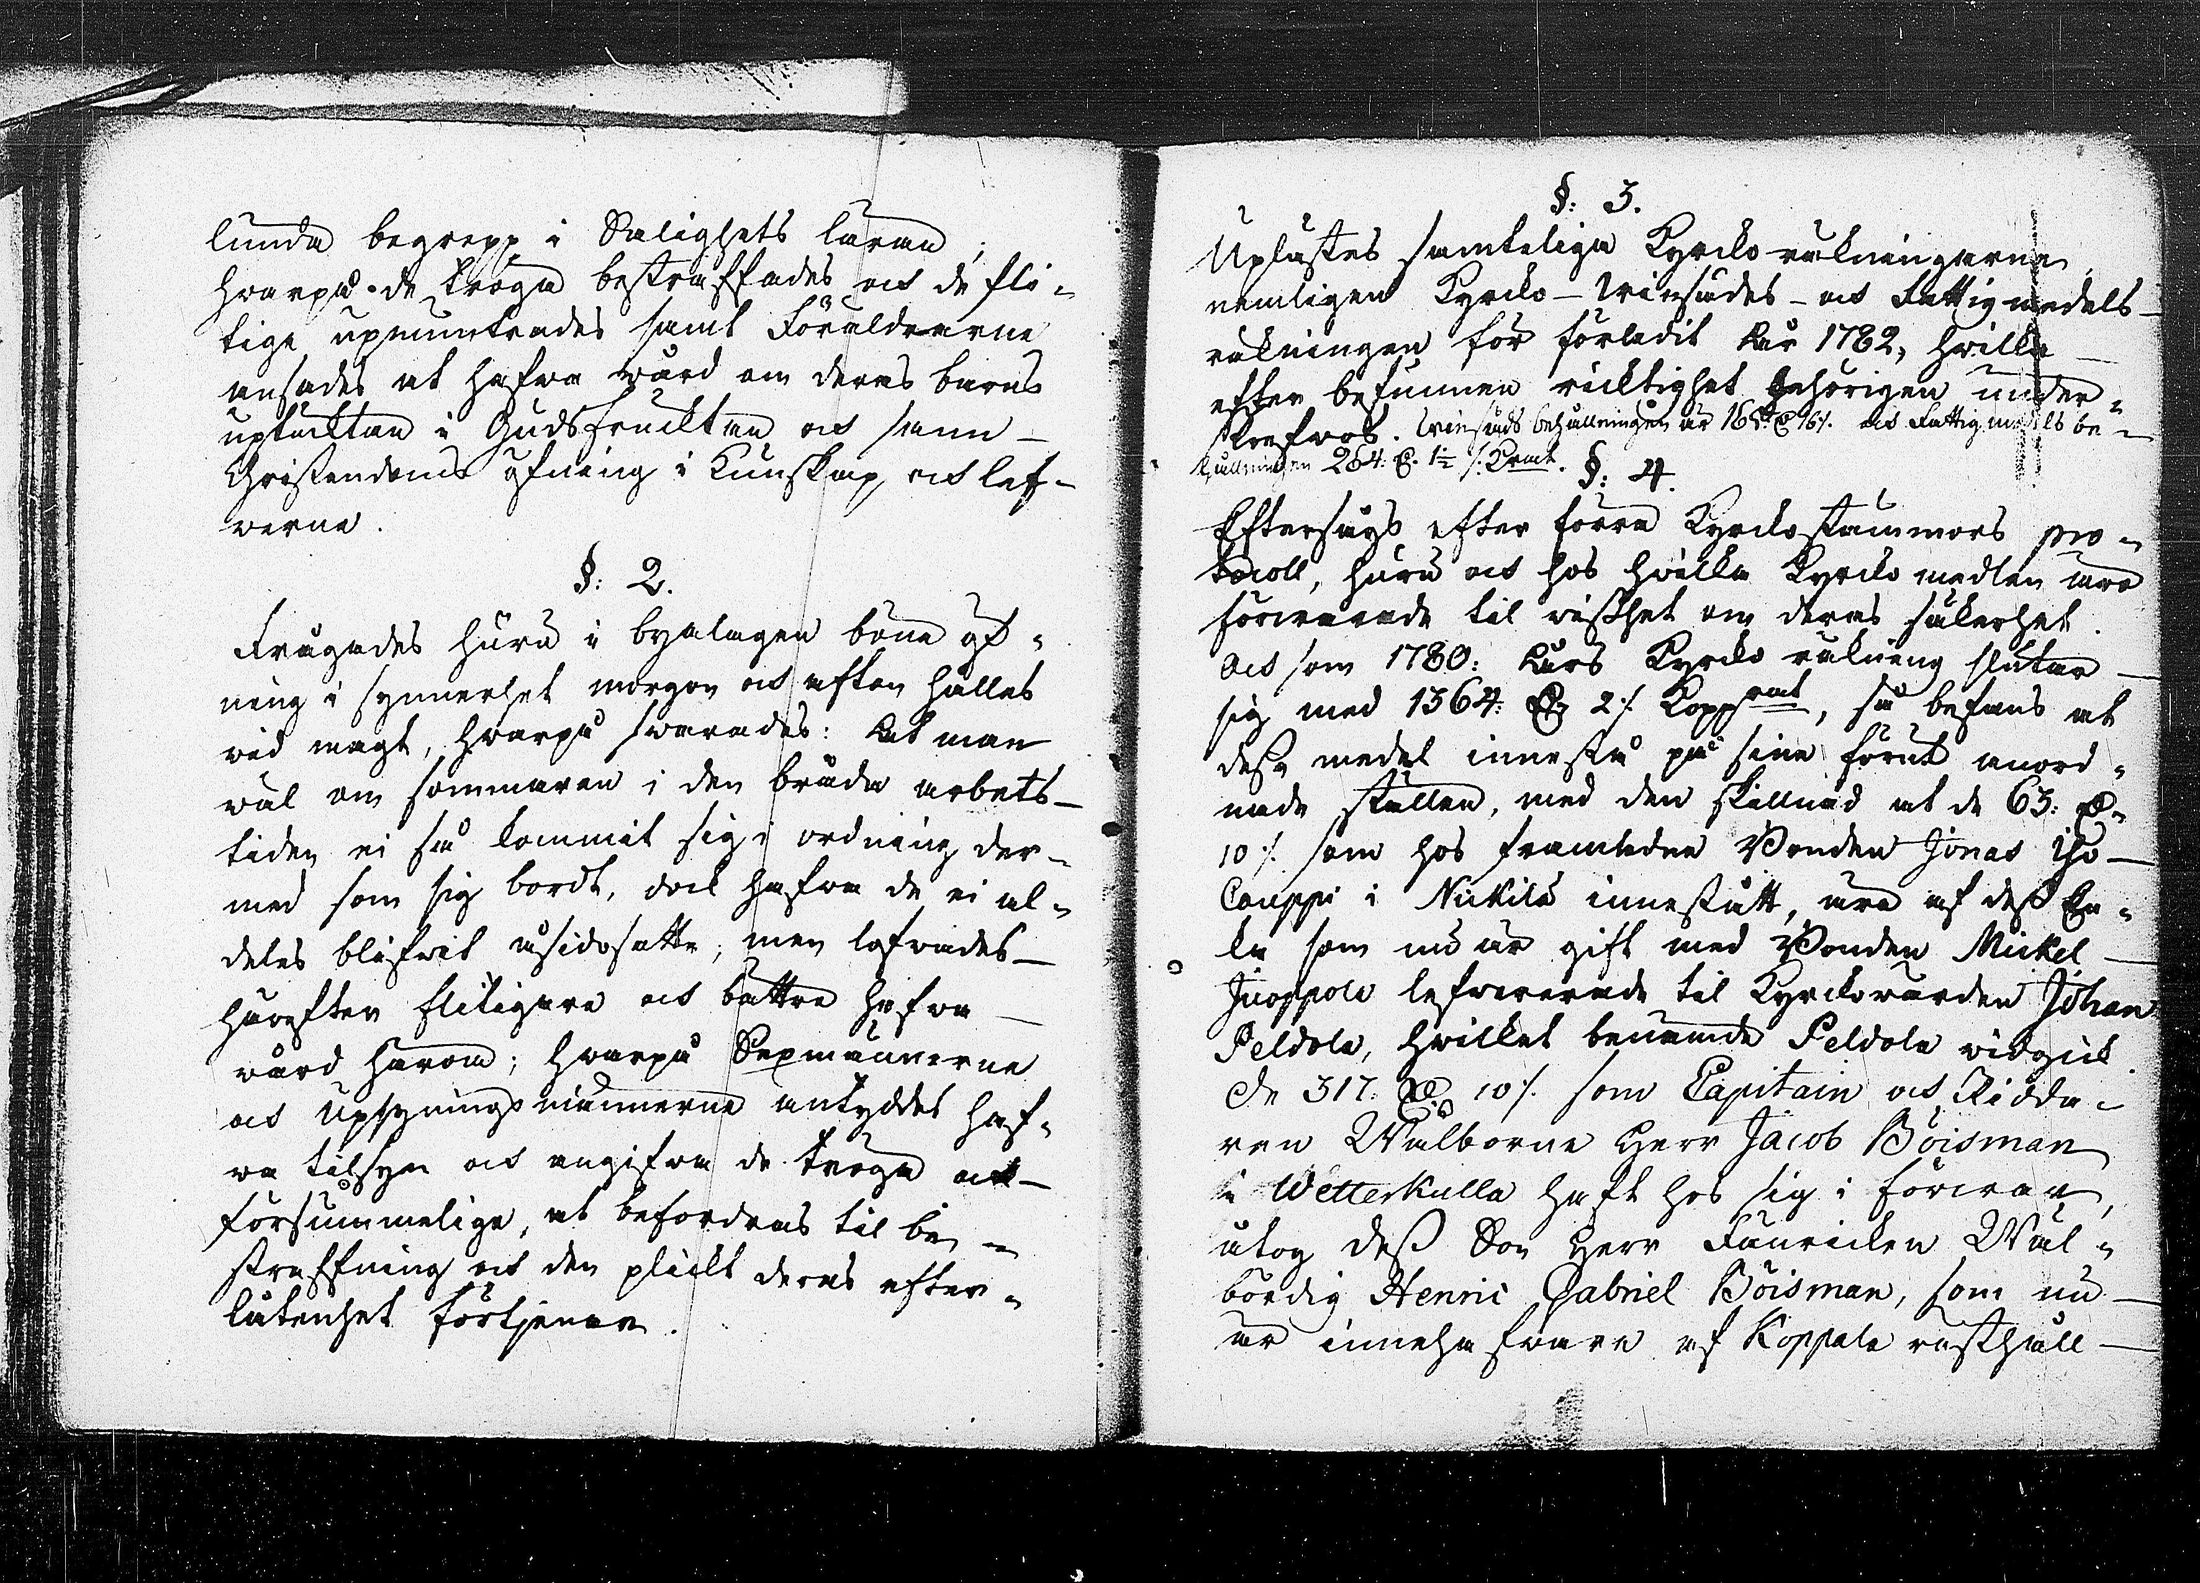 lunda begrepp i Salighets läran,
hvarpå de tröga bestraffades och de fli-
tige upmuntrades samt Föräldrarne
ansades at hafwa wård om deras barns
uptucktan i Gudsfrucktan och sann
Christendoms öfning i Kunskap och lef-
werne.
§: 2.
Frågades huru i byalagen böne öf-
ning i synnerhet morgon och afton hålles
vid magt, hvarpå svarades: At man
wäl om sommaren i den bråda arbets-
tiden ei så kommit sig i ordning der-
med som sig bordt, dock hafwa de ei al-
deles blifwit åsidosatte; men lofwades
härefter flitigare och bättre hafwa
wård härom; hvarpå Sexmännerne
och Upsyningsmännerne antyddes haf-
wa tilsyn och angifwa de tröga och
försummelige, at befordras til be-
straffning och den plickt deras efter-
låtenhet förtjenar.
§: 3.
Uplästes samteliga Kyrcko räkningarne
nemligen Kyrcko- Winsädes- och Fattigmedels-
räkningen för förledit År 1782, hvilka
efter befunnen ricktighet behörigen under-
skrefwos. Winsäds behållningen är 16 och Fattigmedels be-
hållningen 264:
§: 4.
Eftersågs efter förra Kyrckostämmors pro-
tocoll, huru och hos hvilka Kyrcko medlen äro
förwarade til wisshet om deras säkerhet.
Och som 1780: Års Kyrcko räkning slutar
sig med 1364: 2 Kopp mt, så befans at
dessa medel innestå på sine förut anord-
nade ställen, med den skillnad at de 63:
10 som hos framledne Bonden Jonas Iso-
Couppi i Nickilä innestått, äro af dess En-
ka som nu är gift med Bonden Mickel
Juoppola lefwererade til Kyrckowärden Johan
Peldola, hvilket benämde Peldola widgick
De 317: 10 som Capitain och Ridda-
ren Wälborne Herr Jacob Böisman
i Wetterkulla haft hos sig i förwar,
åtog dess Son Herr Fänricken Wäl-
bördig Henric Gabriel Böisman, som nu
är innehafware af Koppala rusthåll